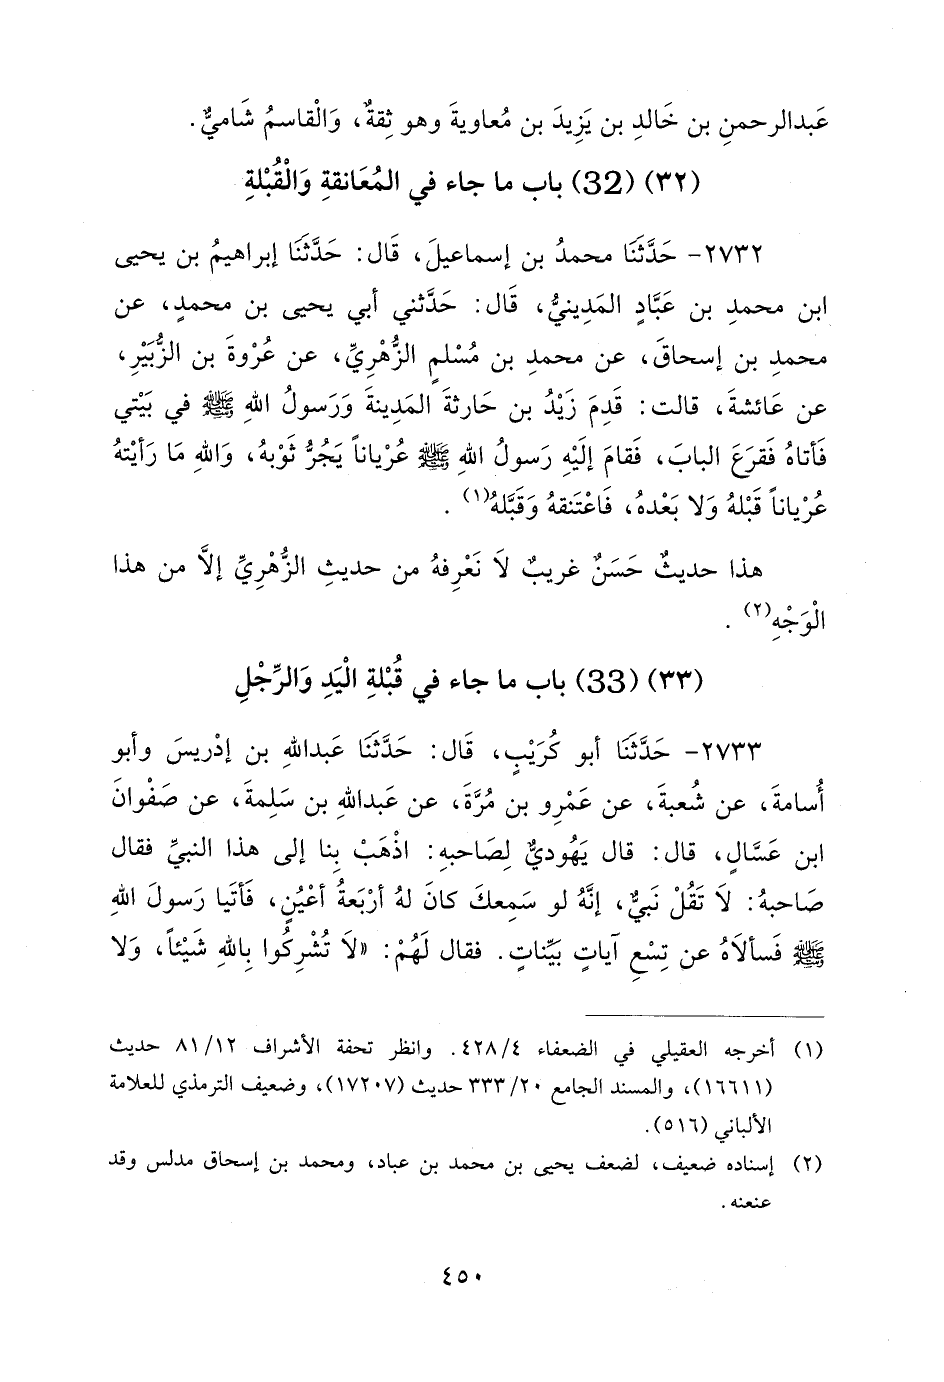 عَبدالرحمنِ بن خَالدِ بن يَزِيدَ بن مُعاويةَ وهو ثِقةٌ، وَالْقاسمُ شَاميٌّ.
(٣٢) (32) باب ما جاء في المُعَانقةِ وَالْقُبْلةِ
٢٧٣٢- حَدَّثَنَا محمدُ بن إسماعيلَ، قَال: حَدَّثَنَا إبراهيمُ بن يحيى
ابن محمدِ بن عَبَّادٍ المَدِينيُّ، قَال: حَدَّثني أبي يحيى بن محمدٍ، عن
محمدِ بن إسحاقَ، عن محمدِ بن مُسْلمٍ الزُّهْرِيِّ، عن عُرْوةَ بن الزُّبَيْرِ،
عن عَائشةَ، قالت: قَدِمَ زَيْدُ بن حَارثةَ المَدِينةَ وَرَسولُ اللهِ ﷺ في بَيْتي
فَأتاهُ فَقرَعَ البابَ، فَقامَ إلَيْهِ رَسولُ اللهِ ﷺ عُرْياناً يَجُرُّ ثَوْبهُ، وَاللهِ مَا رَأيْتهُ
عُرْياناً قَبْلهُ وَلا بَعْدهُ، فَاعْتَنقهُ وَقَبَّلهُ(١).
هذا حديثٌ حَسَنٌ غريبٌ لَا نَعْرِفهُ من حديثِ الزُّهْرِيِّ إلَّا من هذا
الْوَجْهِ(٢).
(٣٣) (33) باب ما جاء في قُبْلةِ الْيَدِ وَالرِّجْلِ
٢٧٣٣- حَدَّثَنَا أبو كُرَيْبٍ، قَال: حَدَّثَنَا عَبداللهِ بن إدْريسَ وأبو
أُسامةَ، عن شُعبةَ، عن عَمْرِو بن مُرَّةَ، عن عَبداللهِ بن سَلِمةَ، عن صَفْوانَ
ابن عَسَّالٍ، قال: قال يَهُوديٌّ لِصَاحبهِ: اذْهَبْ بِنا إلى هذا النبيِّ فقال
صَاحبهُ: لَا تَقُلْ نَبيٌّ، إنَّهُ لو سَمِعكَ كانَ لهُ أرْبَعةُ أعْيُنٍ، فَأتَيا رَسولَ اللهِ
ﷺ فَسألاهُ عن تِسْعِ آياتٍ بَيِّناتٍ. فقال لَهُمْ: «لَا تُشْرِكُوا بِاللهِ شَيْئاً، وَلا
(١) أخرجه العقيلي في الضعفاء ٤/٤٢٨. وانظر تحفة الأشراف ١٢/ ٨١ حديث
(١٦٦١١)، والمسند الجامع ٢٠/ ٣٣٣ حديث (١٧٢٠٧)، وضعيف الترمذي للعلامة
الألباني (٥١٦).
(٢) إسناده ضعيف، لضعف يحيى بن محمد بن عباد، ومحمد بن إسحاق مدلس وقد
عنعنه.
٤٥٠